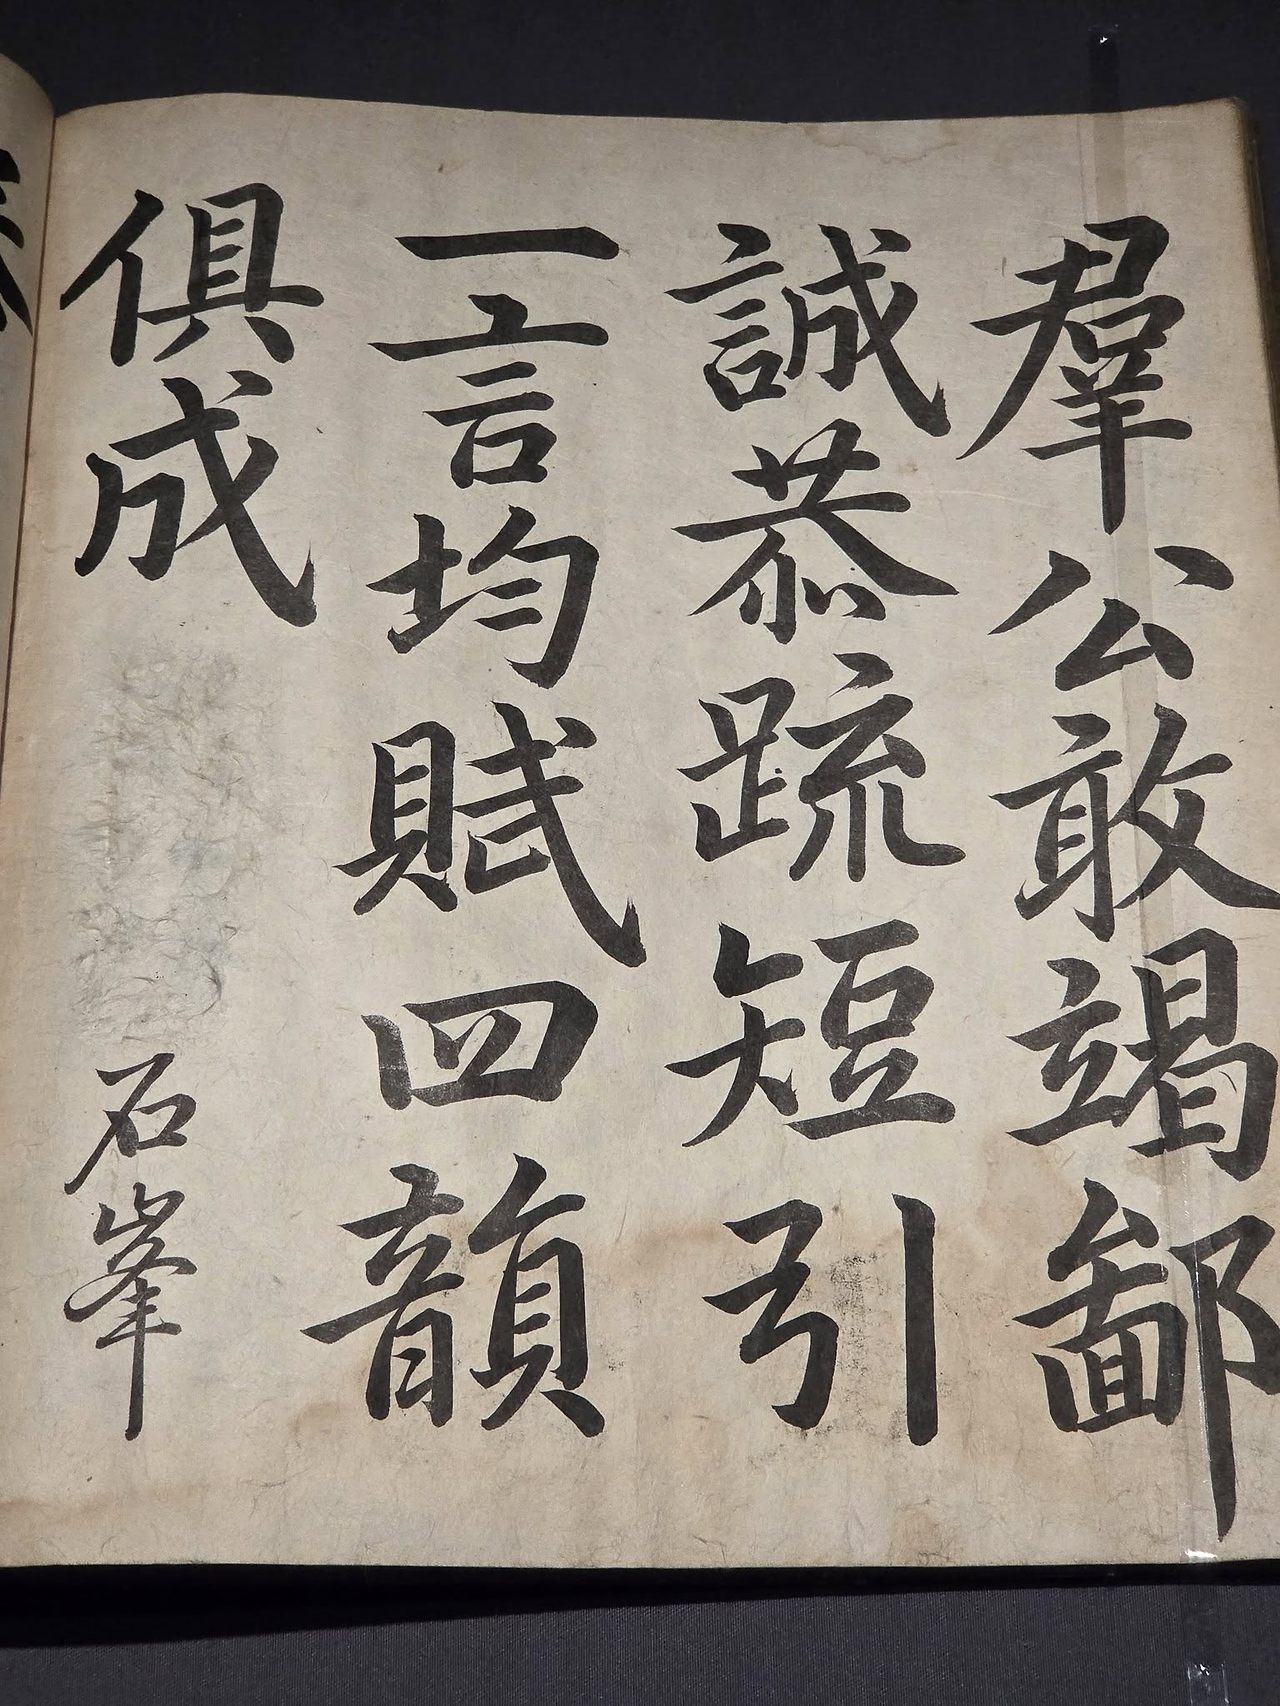 羣公敢竭鄙
誠恭疏短引
一言均賦四韻
俱成
石峯